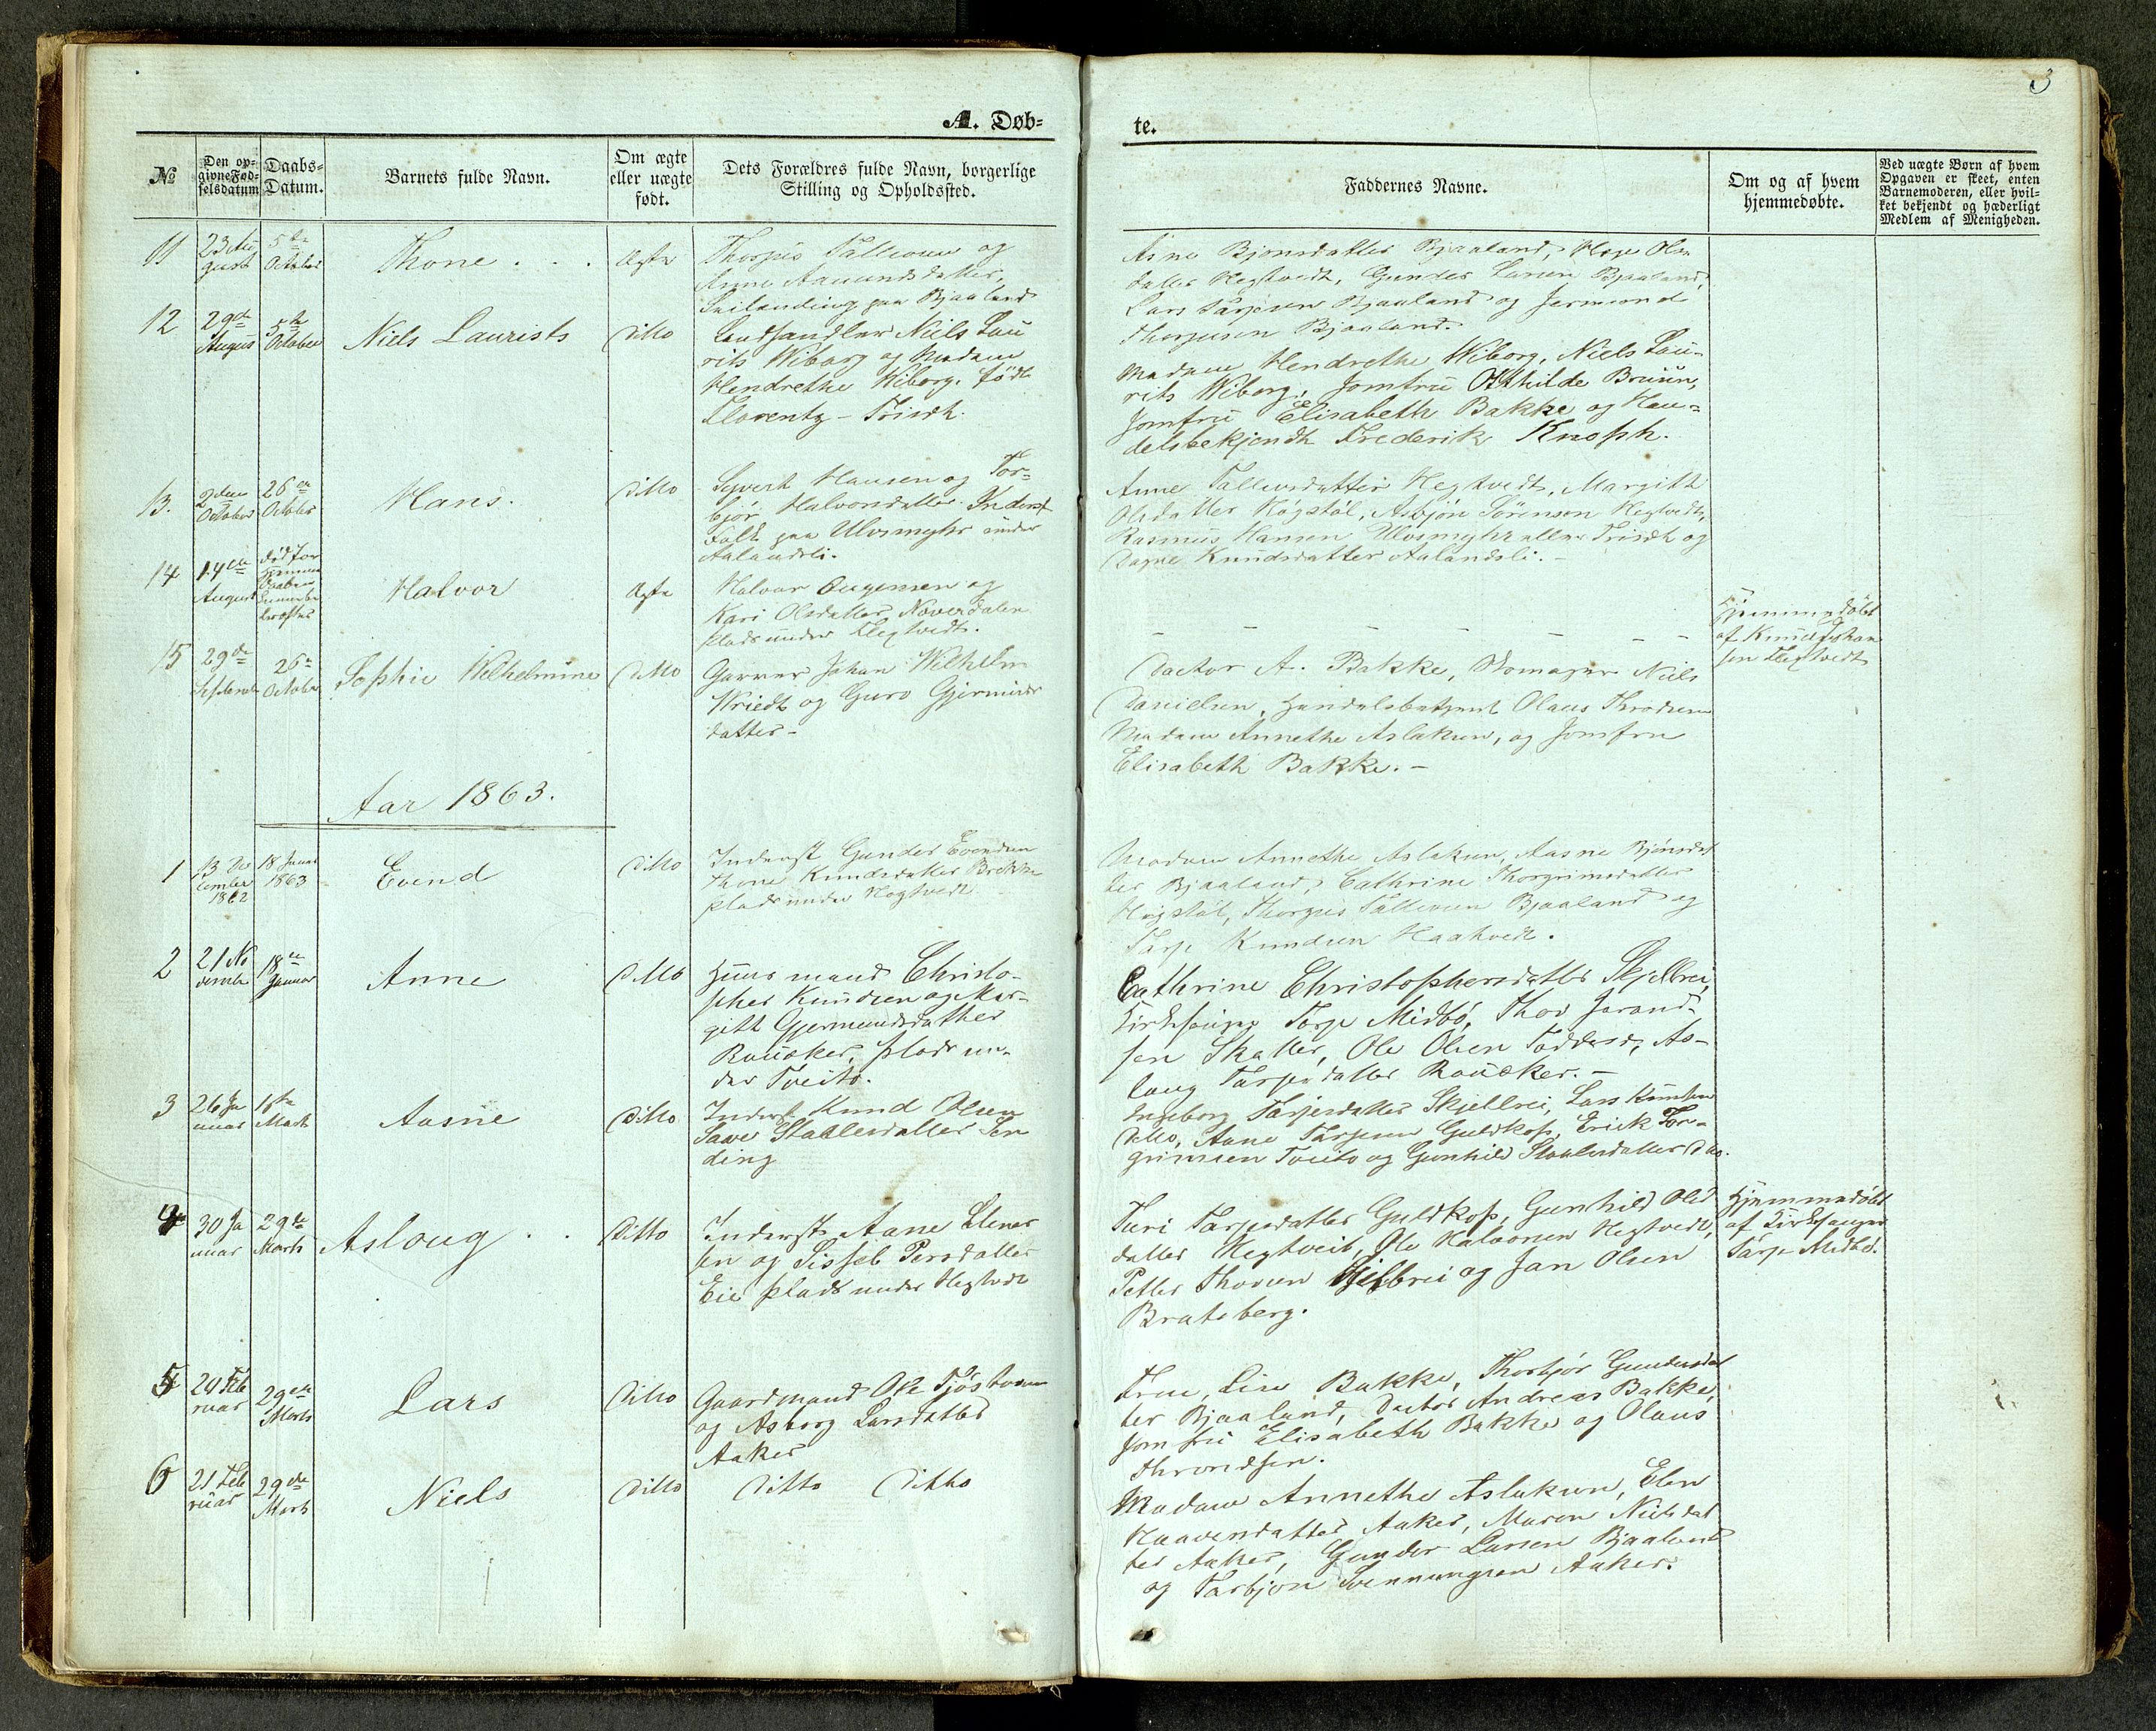 3
A. Døb=
te.
№
Den op-
givne Fød-
selsdatum
Daabs-
Datum.
Barnets fulde Navn.
Om ægte
eller uægte
født.
Dets Forældres fulde Navn, borgerlige
Stilling og Opholdssted.
Faddernes Navne.
Om og af hvem
hjemmedøbte.
Ved uægte Børn af hvem
Opgaven er skeet, enten
Barnemoderen, eller hvil-
ket bekjendt og hæderligt
Medlem af Menigheden.
11
23 Au
gust
5te
October
Thone . . .
Ægte
Thorjus Tallevsen og
Anne Aamundsdatter
paa Bjaaland
Bjonsdatter Bjaaland, Ols
datter Hegtvedt, Gunder Larsen Bjaaland,
Lars Tarjesen Bjaaland og Jermund
Thorjusen Bjaaland.
12
29de
August
5te
October
Niels Laurists
Ditto
Landhandler Niels Lau
rits Wiborg og Madam
Hendrethe Wiborg. født
Florentz - Triset.
Madam Hendrethe Wiborg, Niels Lau-
rits Wiborg, Jomfru Otthilde Bruun,
Jomfru Elisabeth Bakke og Han-
delsbetjendt Frederik Knoph.
13.
2den
October
26de
October
Hans.
Ditto
Syvert Hansen og Tor-
bjør Halvorsdatter Inderst
folk paa Ulvsmyhr under
Aalandsli.
Anne Tallevsdatter Hegtvedt, Margitt
Olsdatter Høgstøl, Asbjøn Sørensen Hegtvedt,
Rasmus Hansen Ulvsmyhr eller Triset og
Knudsdatter Aalandsli. -
14
14de
August
død før
Halvor
Ægte
Halvor og
Kari Olsdatter Noverdalen
plads under Hegtvedt.
- - - - - -
Hjemmedøbt
af Knud Johan
sen Hegtvedt
15
29de
Septemb
26de
October
Sophie Wilhelmine
Ditto
Garver Johan Wilhelm
Wriedt og Guro Gjermunds
datter -
Doctor A. Bakke, Niels
Danielsen, Handelsbetjent Olaus Throndsen
Madam Annethe Aslaksen, og Jomfru
Elisabeth Bakke. -
Aar 1863.
1
13 De
cember
1862
18 Januar
1863
Evend
Ditto
Inderst Gunder Evendsen
Thone Knudsdatter Brokke
plads under Hegtvedt
Madam Annethe Aslaksen, Aasne Bjønsdat
ter Bjaaland, Cathrine Thorgrimsdatter
Høgstøl, Thorjus Tallevsen Bjaaland og
Tarje Knudsen Haatvedt.
2
21 No
vember
18de
Januar
Anne
Ditto
Huusmand Christo-
pher Knudsen og Mar-
gitt Gjermundsdatter
Rauåker, plads un-
der Tveito.
Cathrine Christophersdatter Skjelbrei,
Kirksanger Tarje Midbø, Thov Jarand-
sen Skatter, Ole Olsen As-
laug Tarjesdatter Rauåker. -
3
26 Ja
nuar
1ste
Marts
Aasne
Ditto
Inderst Knud Olsen
Saave Staalesdatter Sen
ding
Ingeborg Tarjesdatter Skjelbrei, Lars Knudsen
ditto, Aane Tarjesen Guldkops, Erick Tor-
grimsen Tveito og Gunhild Staalesdatter Dito.
4
30 Ja
nuar
29de
Marts
Asloug . .
Ditto
Inderst Aane
sen og Sissel Persdatter
Eie plads under Hegtvedt
Turi Tarjesdatter Guldkops, Gunhild Ols
datter Hegtveit, Ole Halvorsen Hegtvedt,
Petter Thovsen Skjelbrei og Jan Olsen
Bratsberg.
Hjemmedøbt
af Kirksanger
Tarje Midbø.
5
20 Feb
ruar
29de
Marts
Lars
Ditto
Gaardmand Ole Tjøstovsen
og Asborg Larsdatter
Aaker
Frue, Lise Bakke, Thorbjør Gundersdat
ter Bjaaland, Doctor Andreas Bakke,
Jomfru Elisabeth Bakke og Olaus
Throndsen.
6
21 Feb
ruar
29de
Marts
Niels
Ditto
Ditto Ditto
Madam Annethe Aslaksen, Elen
Haaversdatter Aaker, Maren Nielsdat
ter Aaker, Gunder Larsen Bjaaland
og Tarbjøn Svenningsen Aaker.